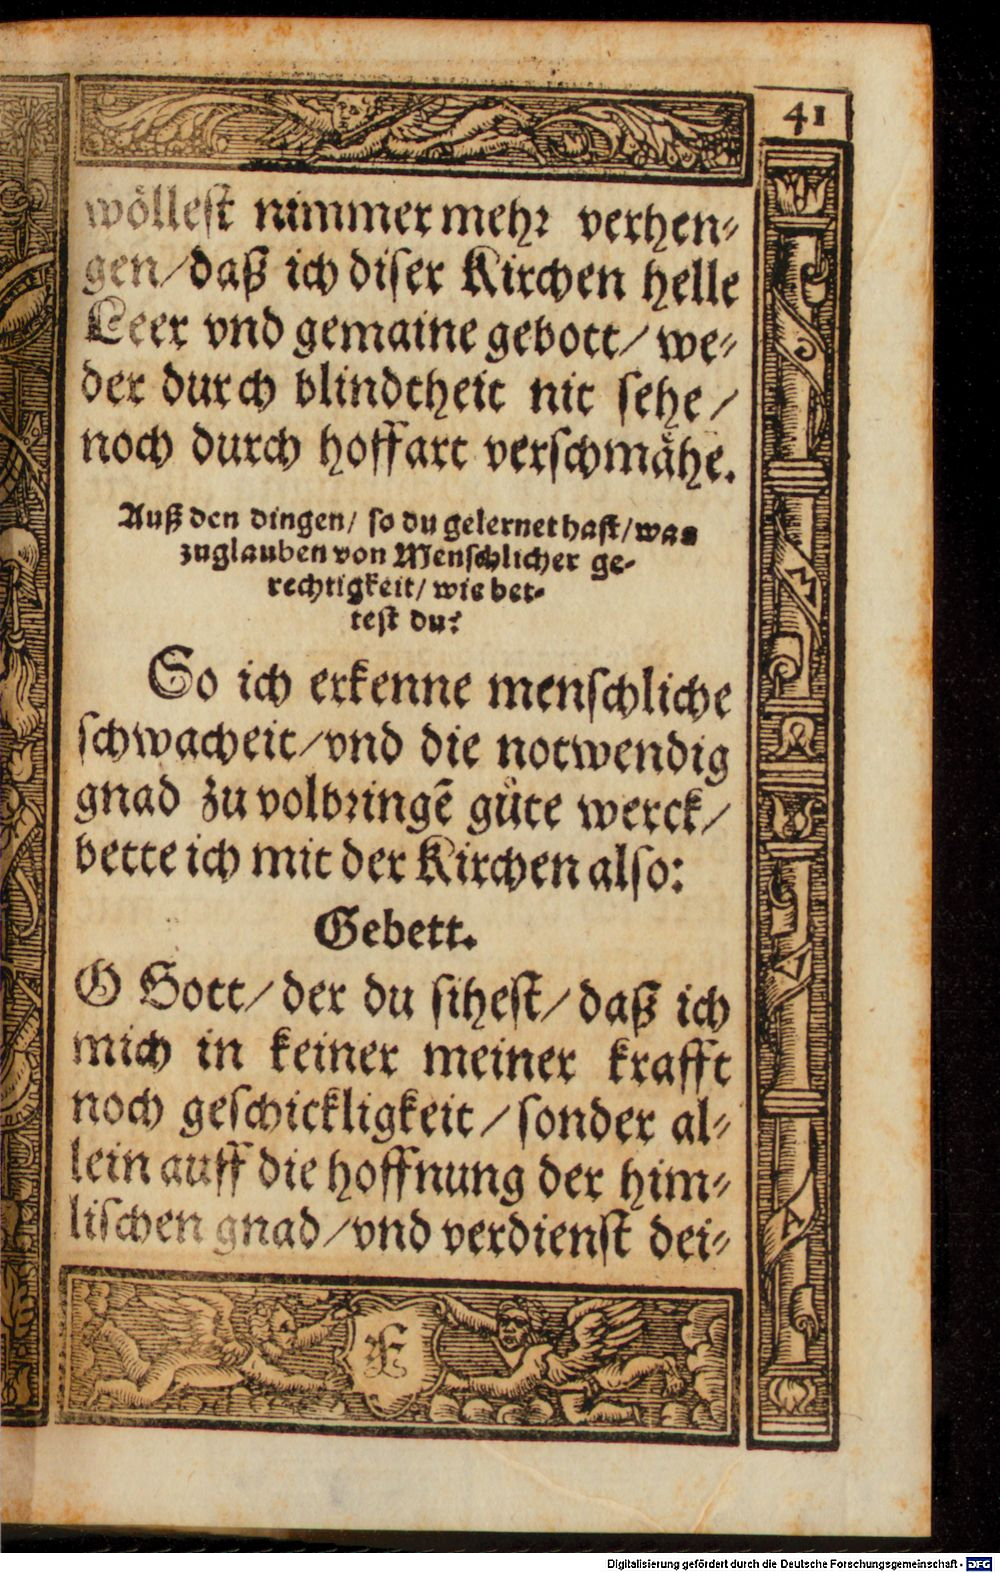 41
wöllest nimmer mehr verhen⸗
gen/daß ich diser Kirchen helle
Leer vnd gemaine gebott/ we⸗
der durch blindtheit nit sehe/
noch durch hoffart verschmähe.
Auß den dingen/ so du gelernet hast/was
zuglauben von Menschlicher ge⸗
rechtigkeit/ wie bet⸗
test du?
So ich erkenne menschliche
schwacheit/vnd die notwendig
gnad zu volbringē gůte werck/
bette ich mit der Kirchen also:
Gebett.
O Gott/ der du sihest/ daß ich
mich in keiner meiner krafft
noch geschickligkeit/sonder al⸗
lein auff die hoffnung der him⸗
lischen gnad/vnd verdienst dei⸗
F
Digitalisierung gefördert durch die Deutsche Forschungsgemeinschaft - DFG